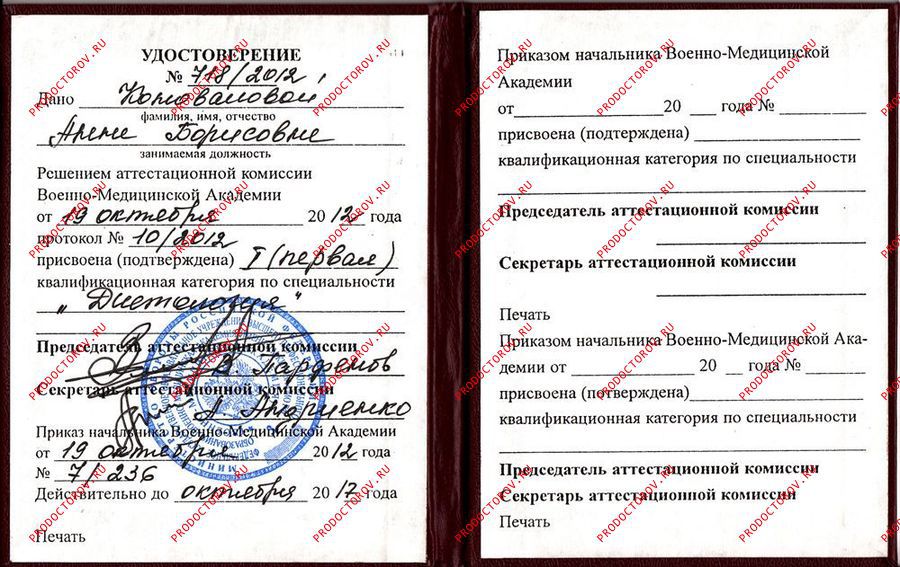 УДОСТОВЕРЕНИЕ
№ 718/2012
Дано Коноваловой
фамилия, имя, отчество
Анне Борисовне
занимаемая должность
Решением аттестационной комиссии
Военно-Медицинской Академии
от 19 октября 2012 года
протокол № 10/2012
присвоена (подтверждена) I (первая)
квалификационная категория по специальности
"Диетология"
Председатель аттестационной комиссии
В. Парфенов
Секретарь аттестационной комиссии
А. Андриенко
Приказ начальника Военно-Медицинской Академии
от 19 октября 2012 года
№ 7/236
Действительно до октября 2017 года
Печать
Приказом начальника Военно-Медицинской
Академии
от 20 года №
присвоена (подтерждена)
квалификационная категория по специальности
Председатель аттестационной комиссии
Секретарь аттестационной комиссии
Печать
Приказом начальника Военно-Медицинской Ака-
демии от 20 года №
присвоена (потверждена)
квалификационная категория по специальности
Председатель аттестационной комиссии
Секретарь аттестационной комиссии
Печать
PRODOCTOROV.RU